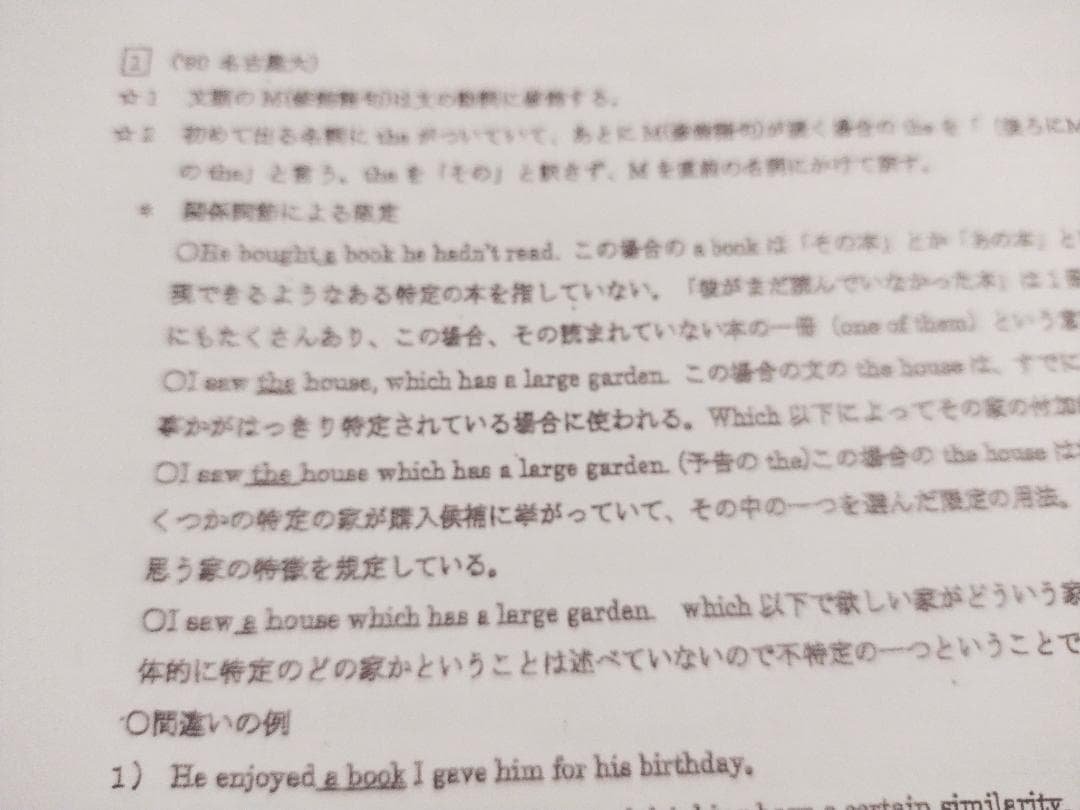 1 ('90 名古屋大)
☆1 文頭の M(修飾語句)は文の動詞に修飾する。
☆2 初めて出る名詞に the がついていて、あとに M(修飾語句)が続く場合の the を「(後ろにM
の the」と言う、the を「その」と訳さず、M を直前の名詞にかけて訳す。
* 関係詞節による限定
○He bought a book he hadn't read. この場合の a book は「その本」とか「あの本」と
現できるようなある特定の本を指していない。「彼がまだ読んでいなかった本」は1
にもたくさんあり、この場合、その読まれていない本の一冊 (one of them) という意
○I saw the house, which has a large garden. この場合の文の the house は、すでに
事かがはっきり特定されている場合に使われる。Which 以下によってその家の付加
○I saw the house which has a large garden. (予告の the)この場合の the house は
くつかの特定の家が購入候補に挙がっていて、その中の一つを選んだ限定の用法。
思う家の特徴を規定している。
○I saw a house which has a large garden. which 以下で欲しい家がどういう家
体的に特定のどの家かということは述べていないので不特定の一つということで
○間違いの例
1) He enjoyed a book I gave him for his birthday.
a certain similarity